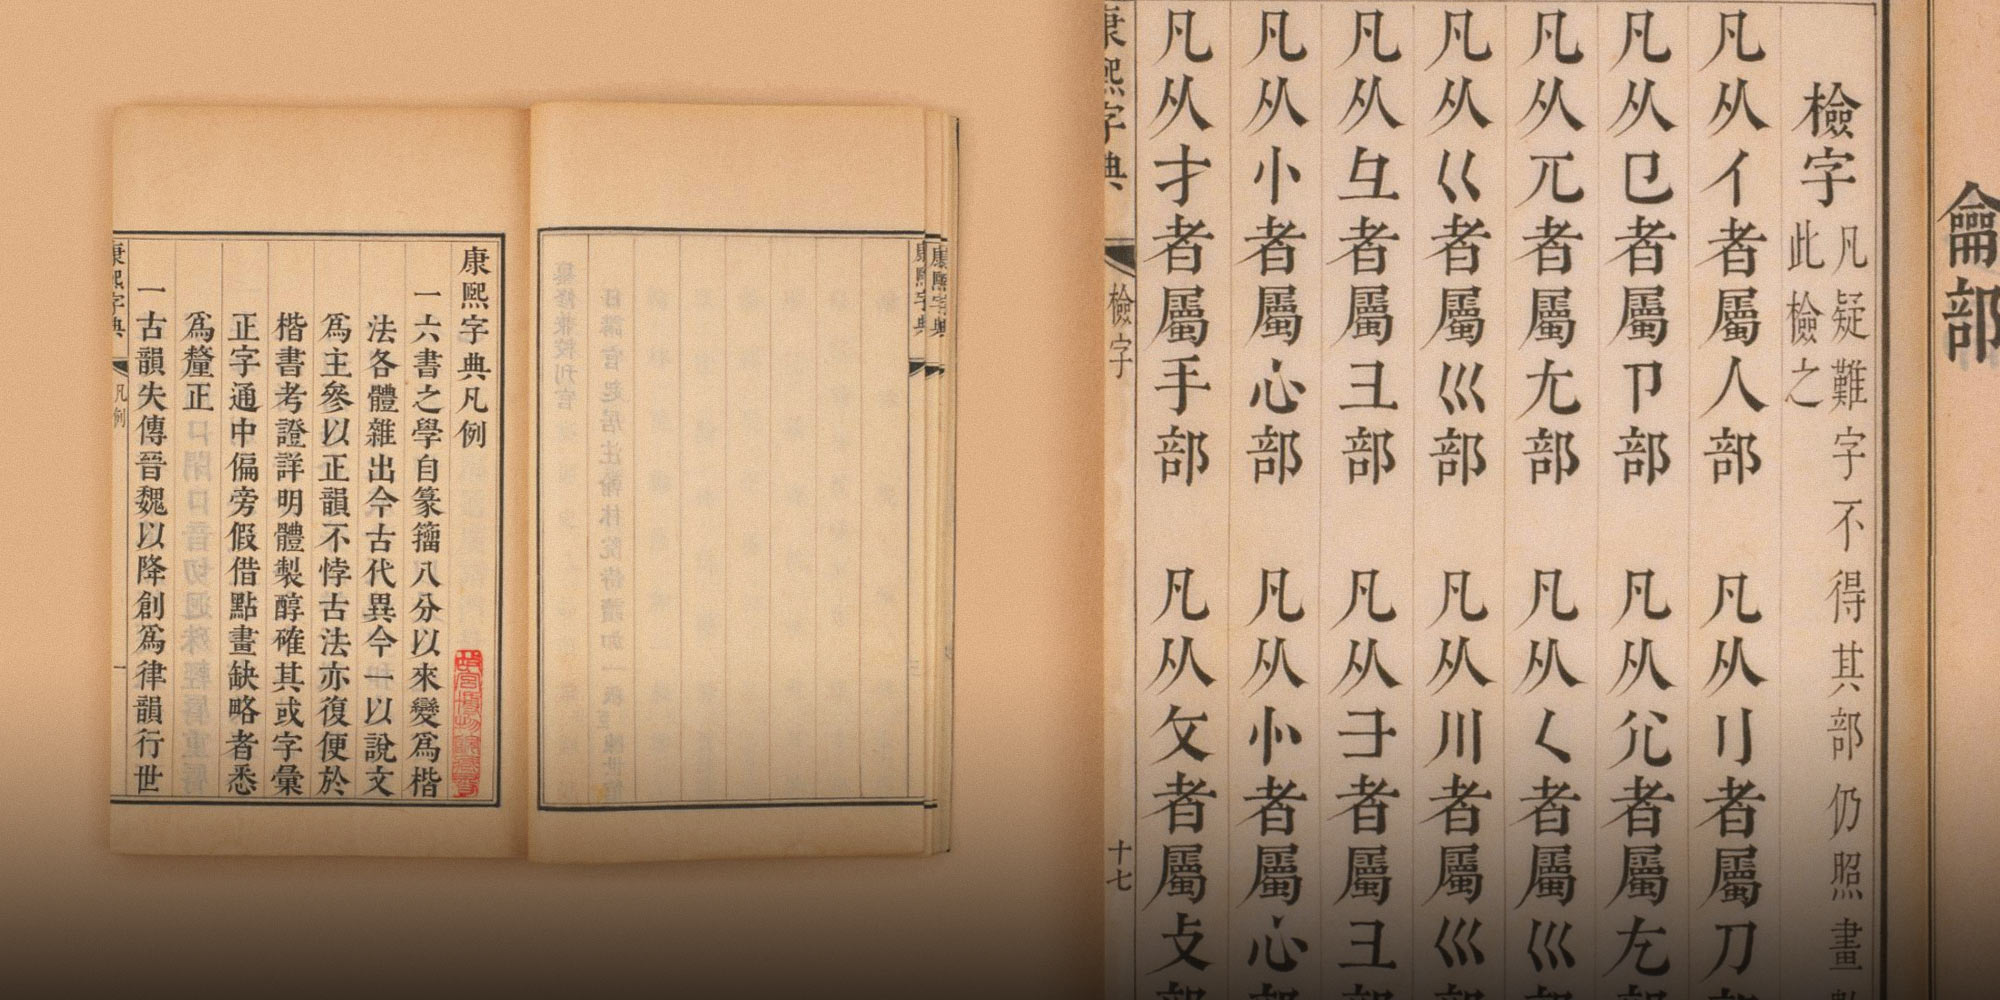 康熙字典凡例
一六書之學自篆籀八分以來變爲楷
法各體雜出今古代異今一以說文
爲主參以正韻不悖古法亦復便於
楷書考證詳明體製醇確其或字彙
正字通中偏旁假借點畫缺略者悉
爲釐正
一古韻失傳晉魏以降創爲律韻行世
康熙字典
凡例
一
康熙字典
龠部
檢字
凡疑難字不得其部仍照畫
此檢之
凡从亻者屬人部
凡从刂者屬刀
凡从㔾者屬卩部
凡从尣者屬尢
凡从兀者屬尢部
凡从𡿨者屬巛
凡从巜者屬巛部
凡从川者屬巛
凡从彑者屬彐部
凡从彐者屬彐
凡从小者屬心部
凡从㣺者屬心
凡从才者屬手部
凡从攵者屬攴
康熙字典
檢字
十七